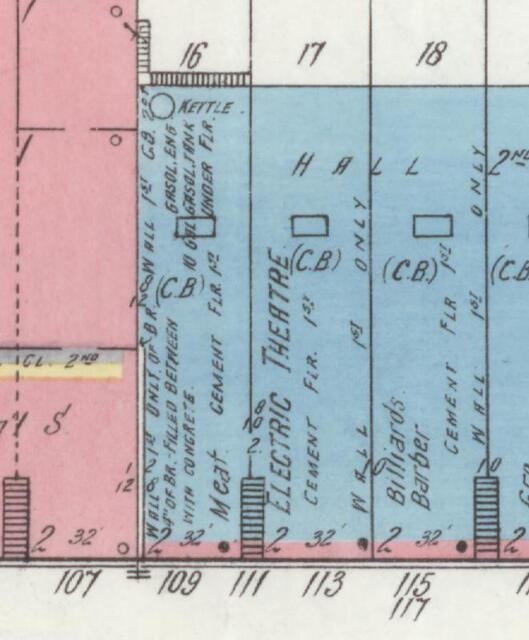 16 17 18
KETTLE
GASOL. ENG
10 GAL GASOL. TANK
UNDER FLR.
H A L L 2ND
(C.B) (C.B) (C.B.) (C.B
WALL 8" 2 1ST ONLY. OF BR.
WALL 1ST C.B. 2ND
4" OF BR.-FILLED BETWEEN
WITH CONCRETE.
Meat CEMENT FLR. 1ST
ELECTRIC THEATRE
CEMENT FLR. 1ST
WALL 1ST ONLY
Billiards
Barber
CEMENT FLR 1ST
WALL 1ST ONLY
CL. 2ND
S
12
8
10
2
10
10
2 32' 2 32' 2 32' 2
107 109 111 113 115
117